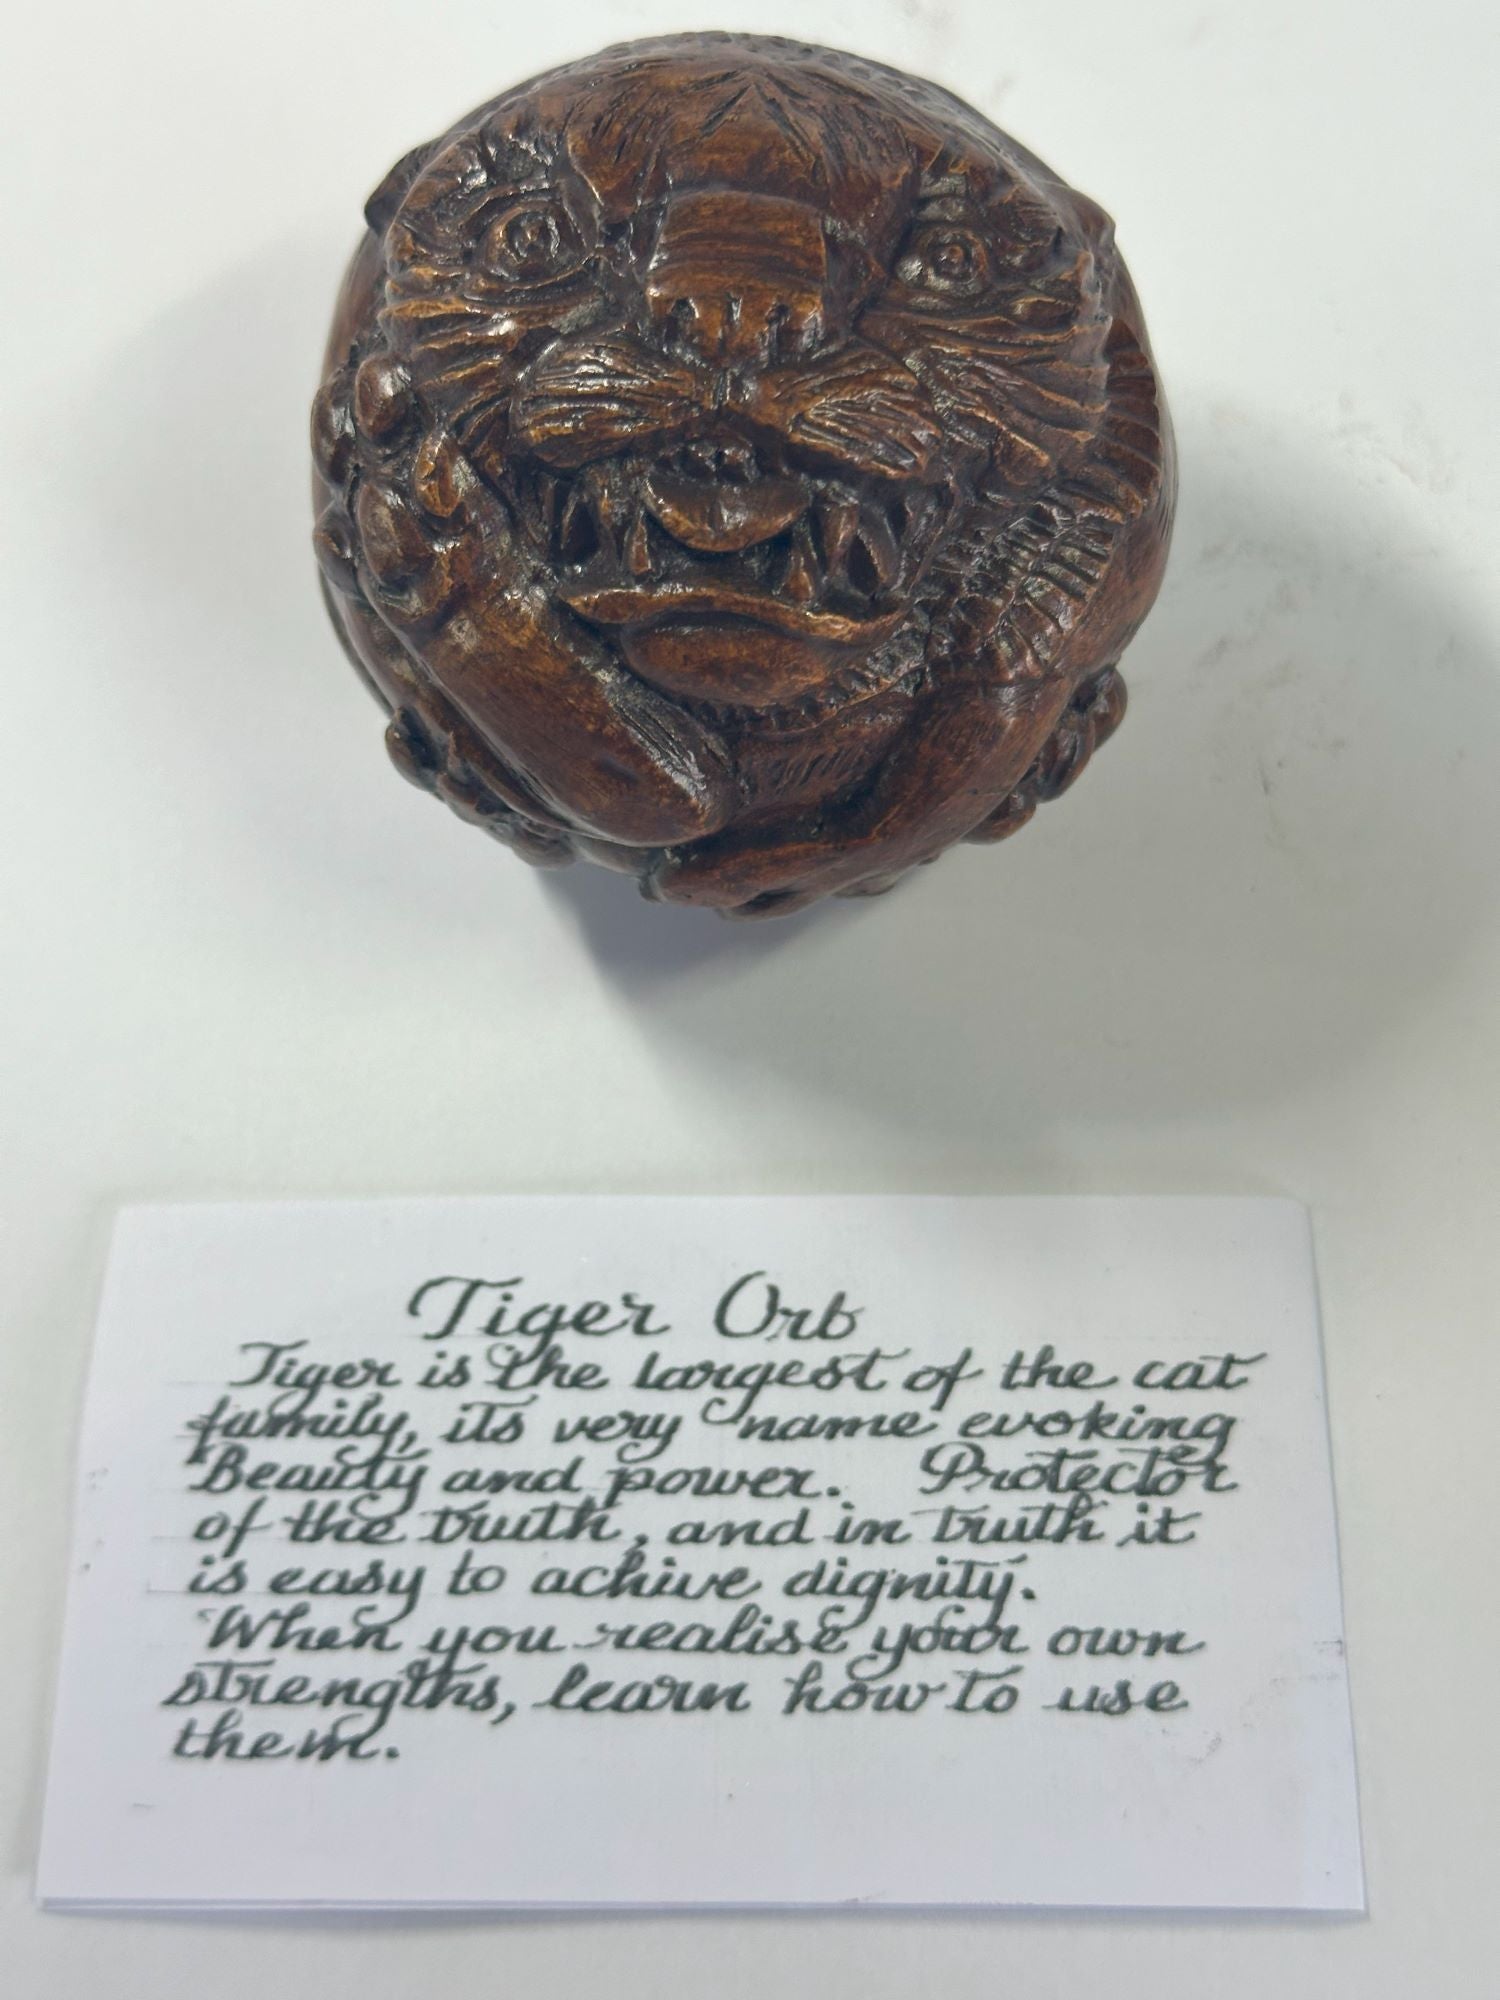 Tiger Orb
Tiger is the largest of the cat
family, its very name evoking
Beauty and power. Protector
of the truth, and in truth it
is easy to achive dignity.
When you realise your own
strengths, learn how to use
them.